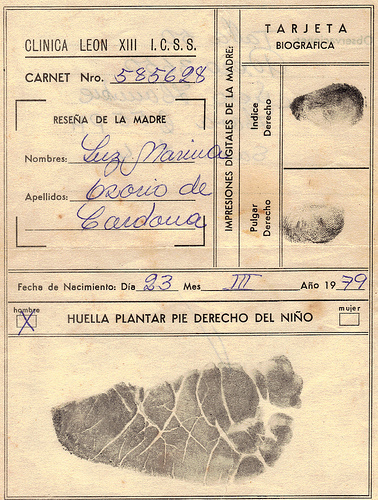 CLINICA LEON XIII I.C.S.S.
CARNET Nro. 585628
RESEÑA DE LA MADRE
Nombres: Luz Marina
Apellidos: Ozorio de
Cardona
IMPRESIONES DIGITALES DE LA MADRE:
TARJETA
BIOGRAFICA
Indice
Derecho
Pulgar
Derecho
Fecha de Nacimiento: Día 23 Mes III Año 1979
hombre X
HUELLA PLANTAR PIE DERECHO DEL NIÑO
mujer